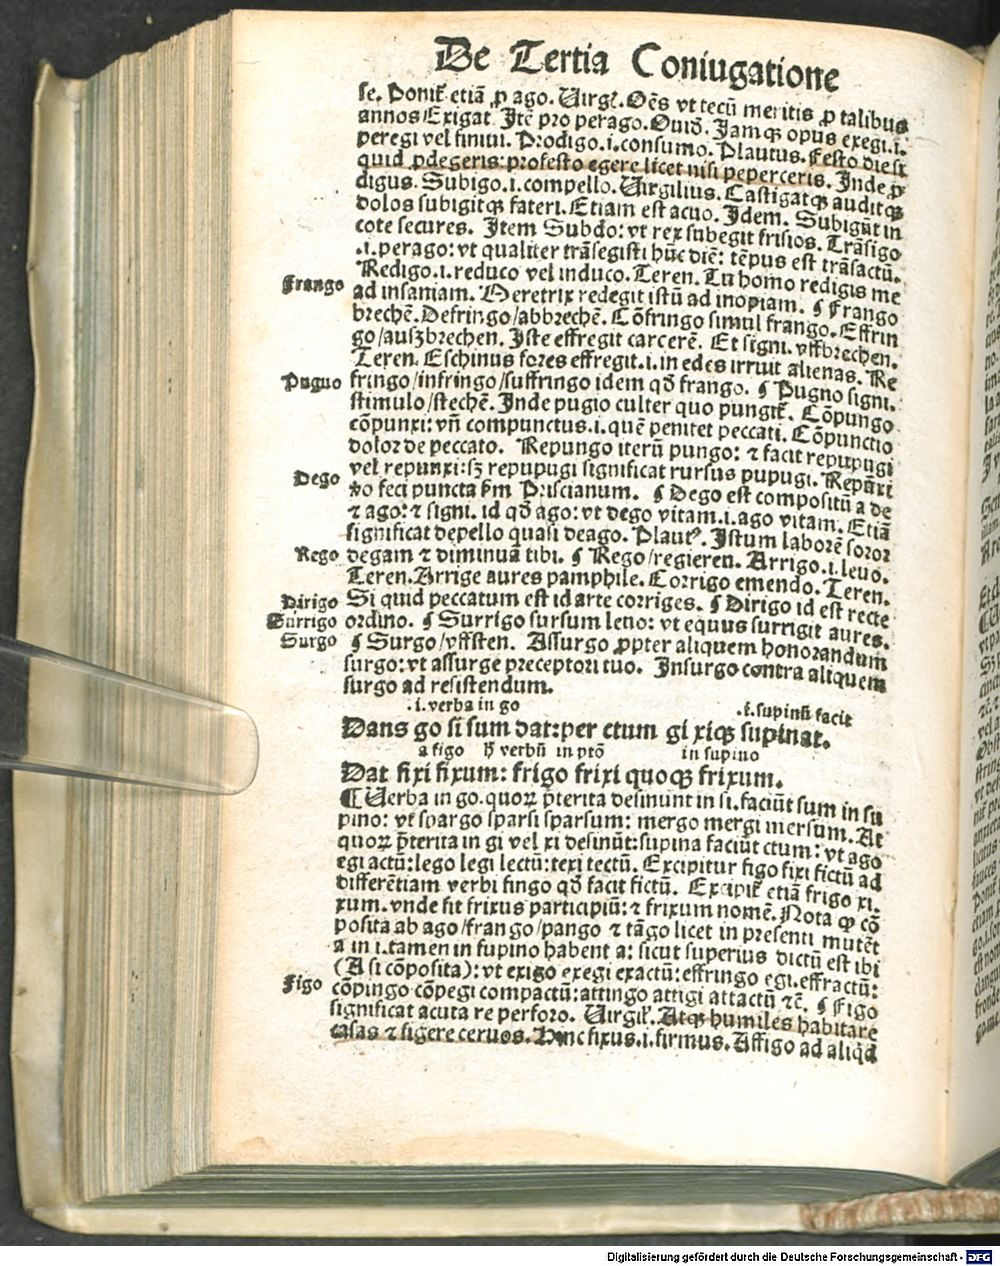 De Tertia Coniugatione
se. Ponit᷑ etiā ꝓ ago. Uirgꝉ. Oẽs vt tecū meritis ꝓ talibus
annos Exigat. Itẽ pro perago. Ouid. Jamqꝫ opus exegi .i.
peregi vel finiui. Prodigo .i. consumo. Plautus. Festo die si
quid ꝓdegeris: profesto egere licet nisi peperceris. Inde ꝓ
digus. Subigo .i. compello. Uirgilius. Castigatqꝫ auditqꝫ
dolos subigitqꝫ fateri. Etiam est acuo. Idem. Subigūt in
cote secures. Item Subdo: vt rex subegit frisios. Trāsigo
.i. perago: vt qualiter trāsegisti hūc diē: tēpus est trāsactū.
Redigo .i. reduco vel induco. Teren. Tu homo redigis me
Frango ad insaniam. Meretrix redegit istū ad inopiam. ¶ Frango
brechē. Defringo/abbrechē. Cōfringo simul frango. Effrin
go/auszbrechen. Iste effregit carcerē. Et signi. vffbrechen.
Teren. Eschinus fores effregit .i. in edes irruit alienas. Re
Pugno fringo/infringo/suffringo idem qd̄ frango. ¶ Pugno signi.
stimulo/stechē. Inde pugio culter quo pungit᷑. Cōpungo
cōpunxi: vn̄ compunctus .i. quē penitet peccati. Cōpunctio
dolor de peccato. Repungo iterū pungo: ⁊ facit repupugi
vel repunxi: sꝫ repupugi significat rursus pupugi. Repūxi
Dego v̊o feci puncta ẜm Priscianum. ¶ Dego est compositū a de
⁊ ago: ⁊ signi. id qd̄ ago: vt dego vitam .i. ago vitam. Etiā
significat depello quasi deago. Plautꝰ. Istum laborē soror
Rego degam ⁊ diminuā tibi. ¶ Rego/regieren. Arrigo .i. leuo.
Teren. Arrige aures pamphile. Corrigo emendo. Teren.
Dirigo Si quid peccatum est id arte corriges. ¶ Dirigo id est recte
Surrigo ordino. ¶ Surrigo sursum leno: vt equus surrigit aures.
Surgo ¶ Surgo/vffsten. Assurgo ꝓpter aliquem honorandum
surgo: vt assurge preceptori tuo. Insurgo contra aliquem
surgo ad resistendum.
.i. verba in go .i. supinū facit
Dans go si sum dat: per ctum gi xiqꝫ supinat.
a figo hͦ verbū in ptō in supino
Dat fixi fixum: frigo frixi quoqꝫ frixum.
¶ Uerba in go. quoꝝ p̄terita desinunt in si. faciūt sum in su
pino: vt᷑ spargo sparsi sparsum: mergo mergi mersum. At
quoꝝ p̄terita in gi vel xi desinūt: supina faciūt ctum: vt ago
egi actū: lego legi lectū: texi tectū. Excipitur figo fixi fictū ad
differētiam verbi fingo qd̄ facit fictū. Excipit᷑ etiā frigo xi.
xum. vnde fit frixus participiū: ⁊ frixum nomē. Nota ꝙ cō
posita ab ago/frango/pango ⁊ tāgo licet in presenti mutēt
a in i. tamen in supino habent a: sicut superius dictū est ibi
(A si cōposita): vt exigo exegi exactū: effringo egi. effractū:
Figo cōpingo cōpegi compactū: attingo attigi attactū ⁊c̄. ¶ Figo
significat acuta re perforo. Uirgiꝉ. Atqꝫ humiles habitare
casas ⁊ figere ceruos. Hinc fixus .i. firmus. Affigo ad aliqd̄
Digitalisierung gefördert durch die Deutsche Forschungsgemeinschaft - DFG